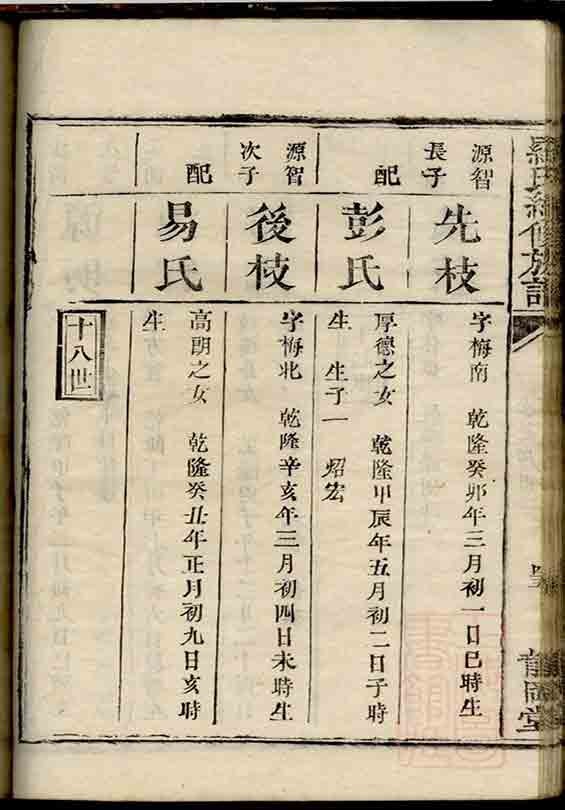 羅氏續修族譜
青岡堂
源智
長子
先枝
字梅南 乾隆癸卯年三月初一日巳時生
配
彭氏
厚德之女 乾隆甲辰年五月初二日子時
生 生子一 炤宏
源智
次子
後枝
字梅北 乾隆辛亥年三月初四日未時生
配
易氏
高朗之女 乾隆癸丑年正月初九日亥時
生
十八世